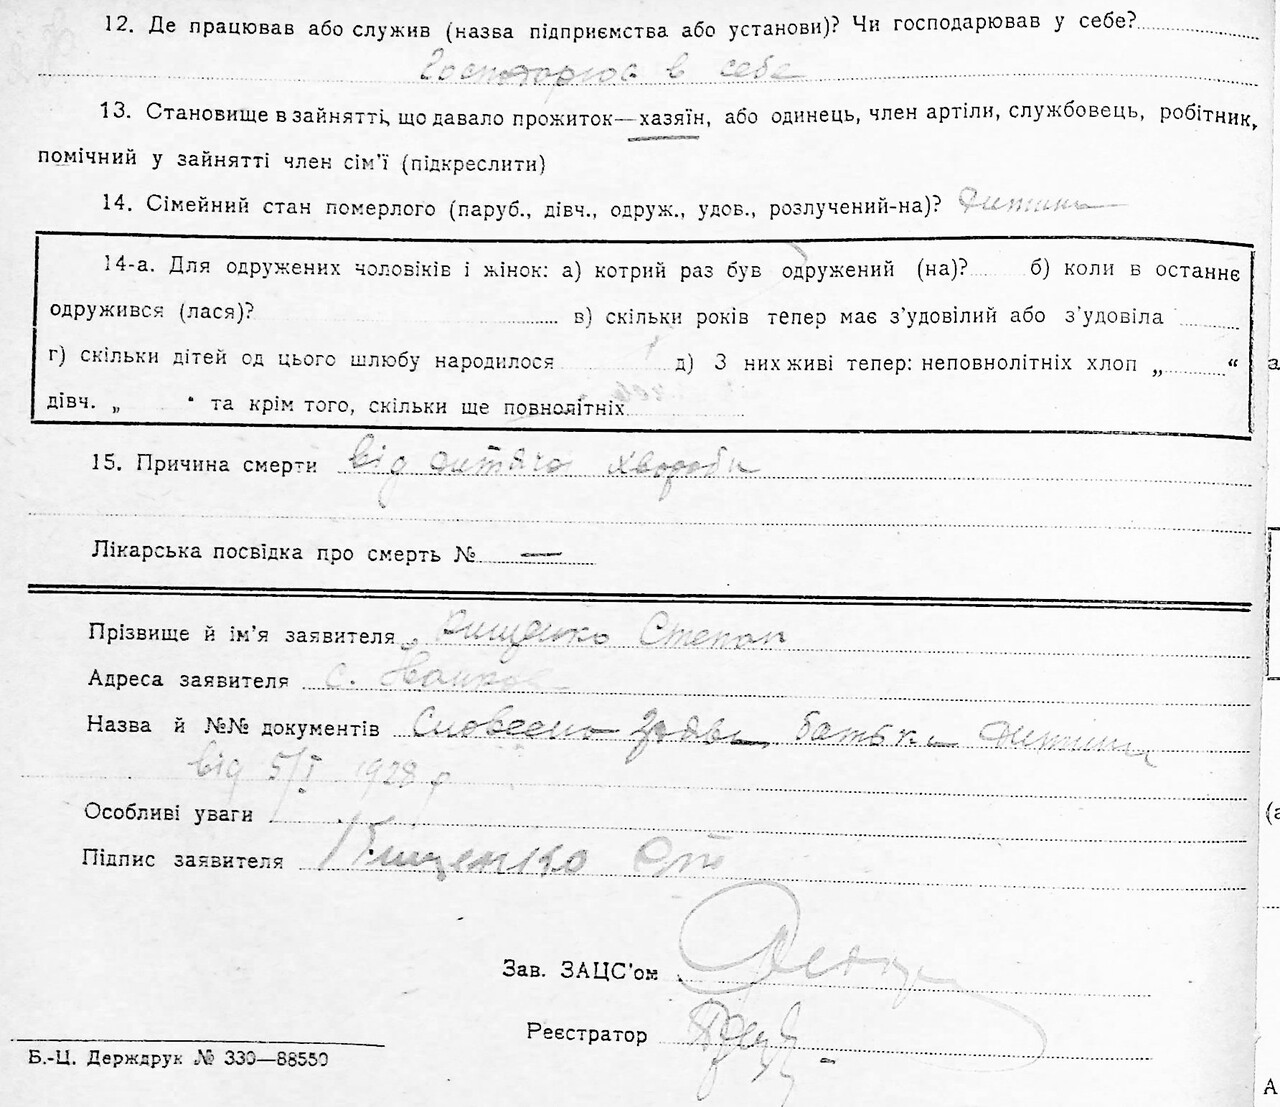 12. Де працював або служив (назва підприємства або установи)? Чи господарював у себе?
в себе
13. Становище в зайнятті, що давало прожиток—хазяїн, або одинець, член артіли, службовець, робітник,
помічний у зайнятті член сім'ї (підкреслити)
14. Сімейний стан померлого (паруб., дівч., одруж., удов., розлучений-на)? Дитина
14-а. Для одружених чоловіків і жінок: а) котрий раз був одружений (на)? б) коли в останнє
одружився (лася)? в) скільки років тепер має з'удовілий або з'удовіла
г) скільки дітей од цього шлюбу народилося д) З них живі тепер: неповнолітніх хлоп „ “
дівч. „ “ та крім того, скільки ще повнолітніх
15. Причина смерти від дитячо хвороби
Лікарська посвідка про смерть № —
Прізвище й ім'я заявителя Кищенко Степан
Адреса заявителя с.
Назва й №№ документів Словесна заява батька дитини
від 5/I 1928 р
Особливі уваги
Підпис заявителя Кищенко Ст
Зав. ЗАЦС'ом
Реєстратор
Б.-Ц. Держдрук № 330—88550